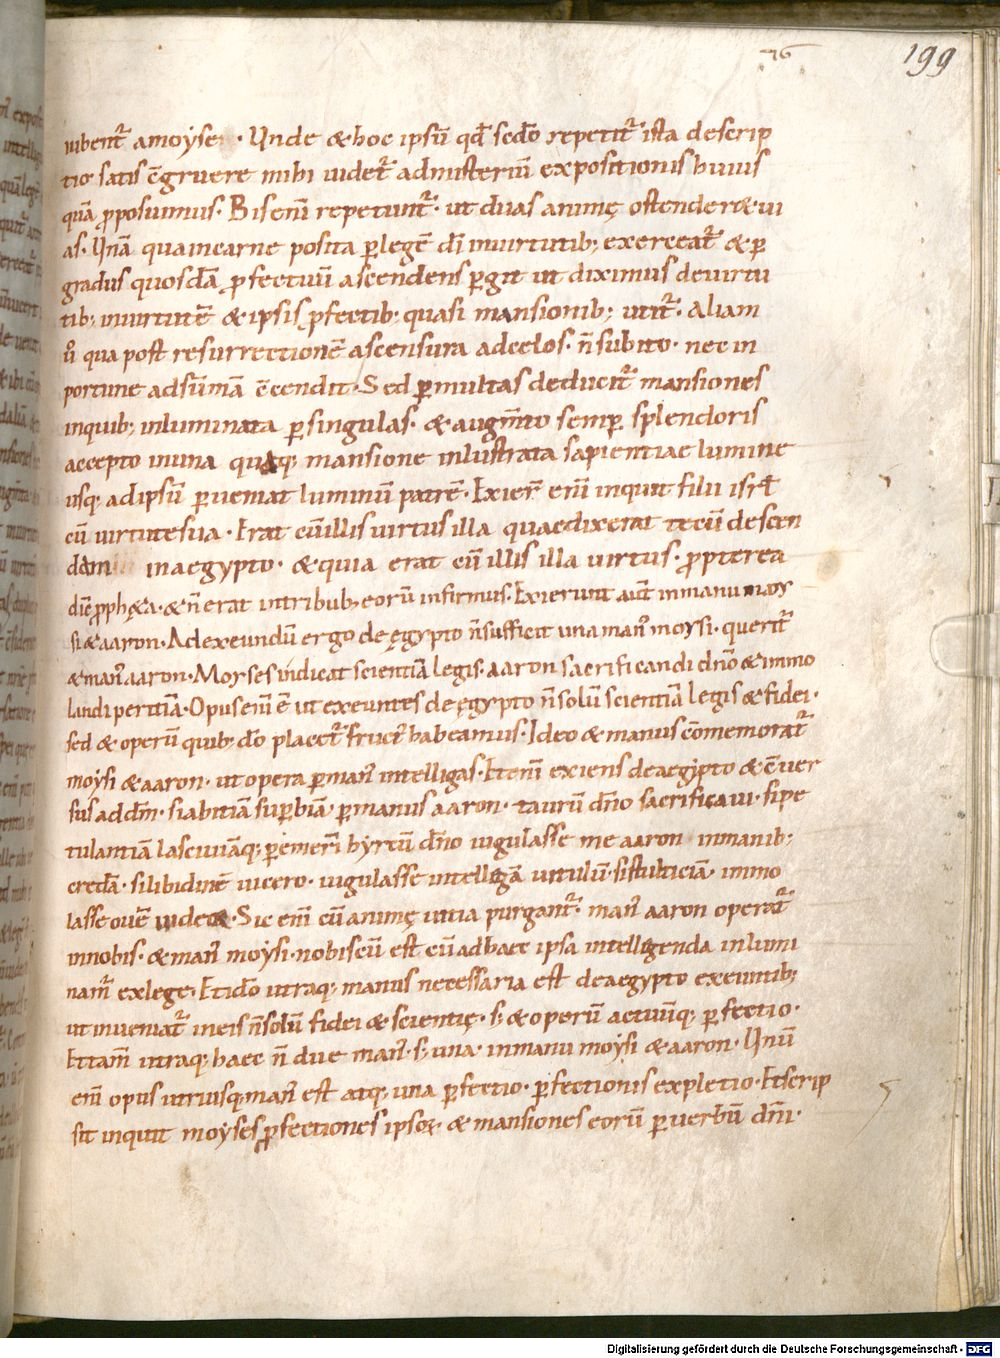 76 199
iubent᷑ amoyse · Unde & hoc ipsū qd̄ scd̄o repetit᷑ ista descrip
tio· satis c̄gruere mihi uidet᷑ admisteriū expositionis huius
quā p̄posuimus· Bis eni repetunt᷑· ut duas animę ostender& ui
as· Unā quaincarne posita ꝑlegē dī inuirtutib; exerceat᷑ & ꝑ
gradus quosdā ꝓfectuū ascendens ꝑgit ut diximus deuirtu
tib; inuirtutē & ipsis ꝓfectib; quasi mansionib; utit᷑· Aliam
ū qua post resurrectionē ascensura adcelos· n̄ subito· nec in
portune adsūmā c̄cendit· Sed ꝑ multas deducit᷑ mansiones
inquib; inluminata ꝑ singulas· & augm̄to semꝑ splendoris
accepto inuna quaq; mansione inlustrata sapientiae lumine
usq; adipsū ꝑueniat luminū patrē· Exier̄ eni inquit filii isrl̄
cū uirtutesua· Erat cū illis uirtus illa quaedixerat tecū descen
dam inaegypto· & quia erat cū illis illa uirtus· ꝓpterea
dic̄ ꝓph&a· & n̄ erat intribub; eorū infirmus· Exierunt aut̄ inmanu moy
si & aaron· Adexeundū ergo de ęgypto n̄ sufficit una man᷑ moysi· querit᷑
& man᷑ aaron· Moyses indicat scientiā legis· aaron sacrificandi dn̄o & immo
landi peritiā· Opus eni ē ut exeuntes de ęgypto n̄ solū scientiā legis & fidei·
sed & operū quib; dō placet᷑ fruct᷑ habeamus· Ideo & manus c̄memorat᷑
moysi & aaron· ut opera ꝑ man᷑ intelligas· Etenī exiens deaegypto & c̄uer
sus addm̄· siabitiā suꝑbiā· ꝑ manus aaron· taurū dn̄o sacrificaui· sipe
tulantiā lasciuiāq; ꝑemeri hyrcū dn̄o iugulasse me aaron inmanib;
credā· silibidinē uicero· iugulasse intellegā uitulū· sistulticiā· immo
lasse ouē uideor· Sic eni cū animę uitia purgant᷑· man᷑ aaron operat᷑
innobis· & man᷑ moysi· nobiscū est cū adhaec ipsa intelligenda inlumi
nam᷑ exlege· Et ido utraq; manus necessaria est deaegypto exeuntib;
ut inueniat᷑ ineis n̄ solū fidei & scientię· s; & operū actuūq; ꝑfectio·
Et tam̄ utraq; haec n̄ due man᷑· s; una· inmanu moysi & aaron· Unū
enī opus utriusq; man᷑ est atq; una ꝑfectio· ꝑfectionis expletio· Et scrip
sit inquit moyses ꝓfectiones ipsoꝝ· & mansiones eorū ꝑ uerbū dn̄i·
Digitalisierung gefördert durch die Deutsche Forschungsgemeinschaft - DFG